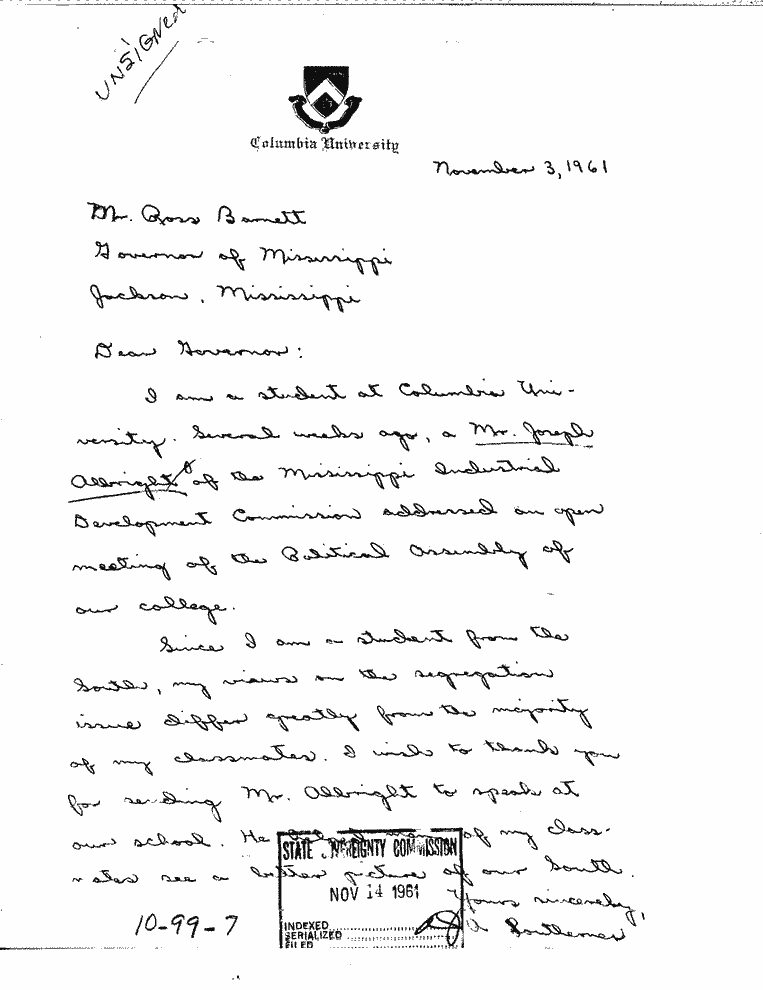 UNSIGNED
Columbia University
November 3, 1961
Mr. Ross Barnett
Governor of Mississippi
Jackson, Mississippi
Dear Governor:
I am a student at Columbia Uni-
versity. Several weeks ago, a Mr. Joseph
Albright of the Mississippi Industrial
Development Commission addressed an open
meeting of the Political Assembly of
our college.
Since I am a student from the
South, my views on the segregation
issue differ greatly from the majority
of my classmates. I wish to thank you
for sending Mr. Albright to speak at
our school. He helped many of my class-
mates see a better picture of our South.
Yours sincerely,
A Southerner
STATE SOVEREIGNTY COMMISSION
NOV 14 1961
INDEXED
SERIALIZED
FILED
10-99-7